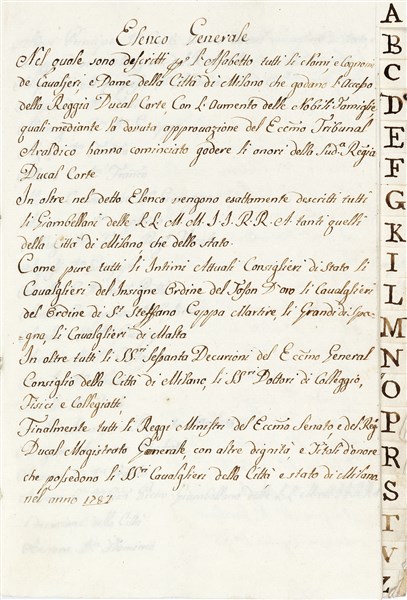 Elenco Generale
Nel quale sono descritti per l'Alfabetto tutti li Nomi, e Cognomi
de Cavalieri, e Dame della Città di Milano che godano l'Accesso
della Reggia Ducal Corte, Con L'Aumento delle Nobili Famiglie
quali mediante la dovuta approvazione del Eccmo Tribunal
Araldico hanno cominciato godere li onori della Sudta Regia
Ducal Corte
In oltre nel detto Elenco vengono esattamente descritti tutti
li Ciambellani delle L.L. M.M. I.I. R.R. A. tanti quelli
della Città di Milano che dello stato
Come pure tutti li Intimi Attuali Consiglieri di Stato li
Cavalgieri del Insigne Ordine del Toson D'oro li Cavalgieri
del Ordine di St Steffano Cappa Martire, li Grandi di Spa-
gna, li Cavalgieri di Malta
In oltre tutti li SSri Sessanta Decurioni del Eccmo General
Consiglio della Città di Milano, li SSri Dottori di Colleggio,
Fisici e Collegiatti,
Finalmente tutti li Reggi Ministri del Eccmo Senato e del Rego
Ducal Magistrato Camerale, con altre dignità, e Titoli d'onore
che posiedono li SSri Cavalgieri della Città e stato di Milano
nel anno 1787
A
B
C
D
E
F
G
K
I
L
M
N
O
P
R
S
T
V
Z